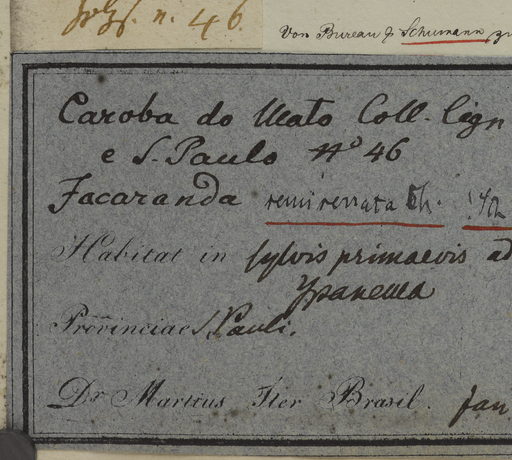 n. 46.
Von Bureau & Schumann
Caroba do Mato Coll. lign
e S. Paulo N° 46
Jacaranda semiserrata Ch.
Habitat in sylvis primaevis ad
Ypanema
Provinciae S. Pauli.
Dr. Martius Iter Brasil. Jan